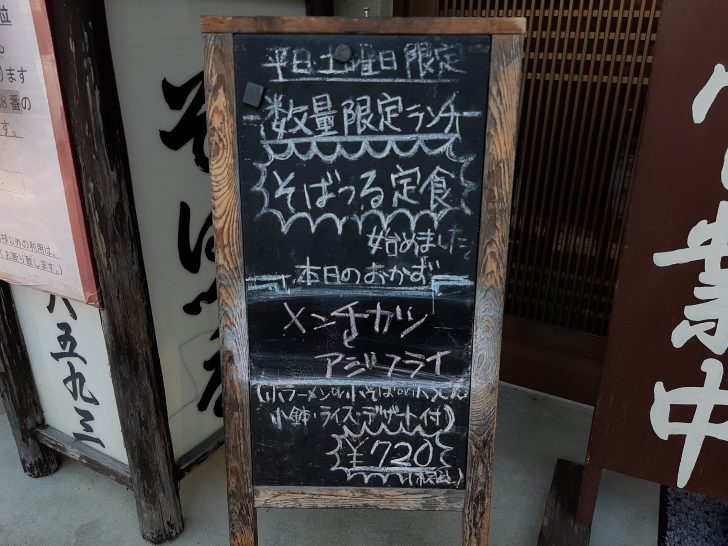 平日・土曜日限定
数量限定ランチ
そばつる定食
始めました
本日のおかず
メンチカツ
と
アジフライ
(小ラーメンor小そばor小うどん
小鉢・ライス・デザート付)
¥720
(税込)
営業中
八五九三